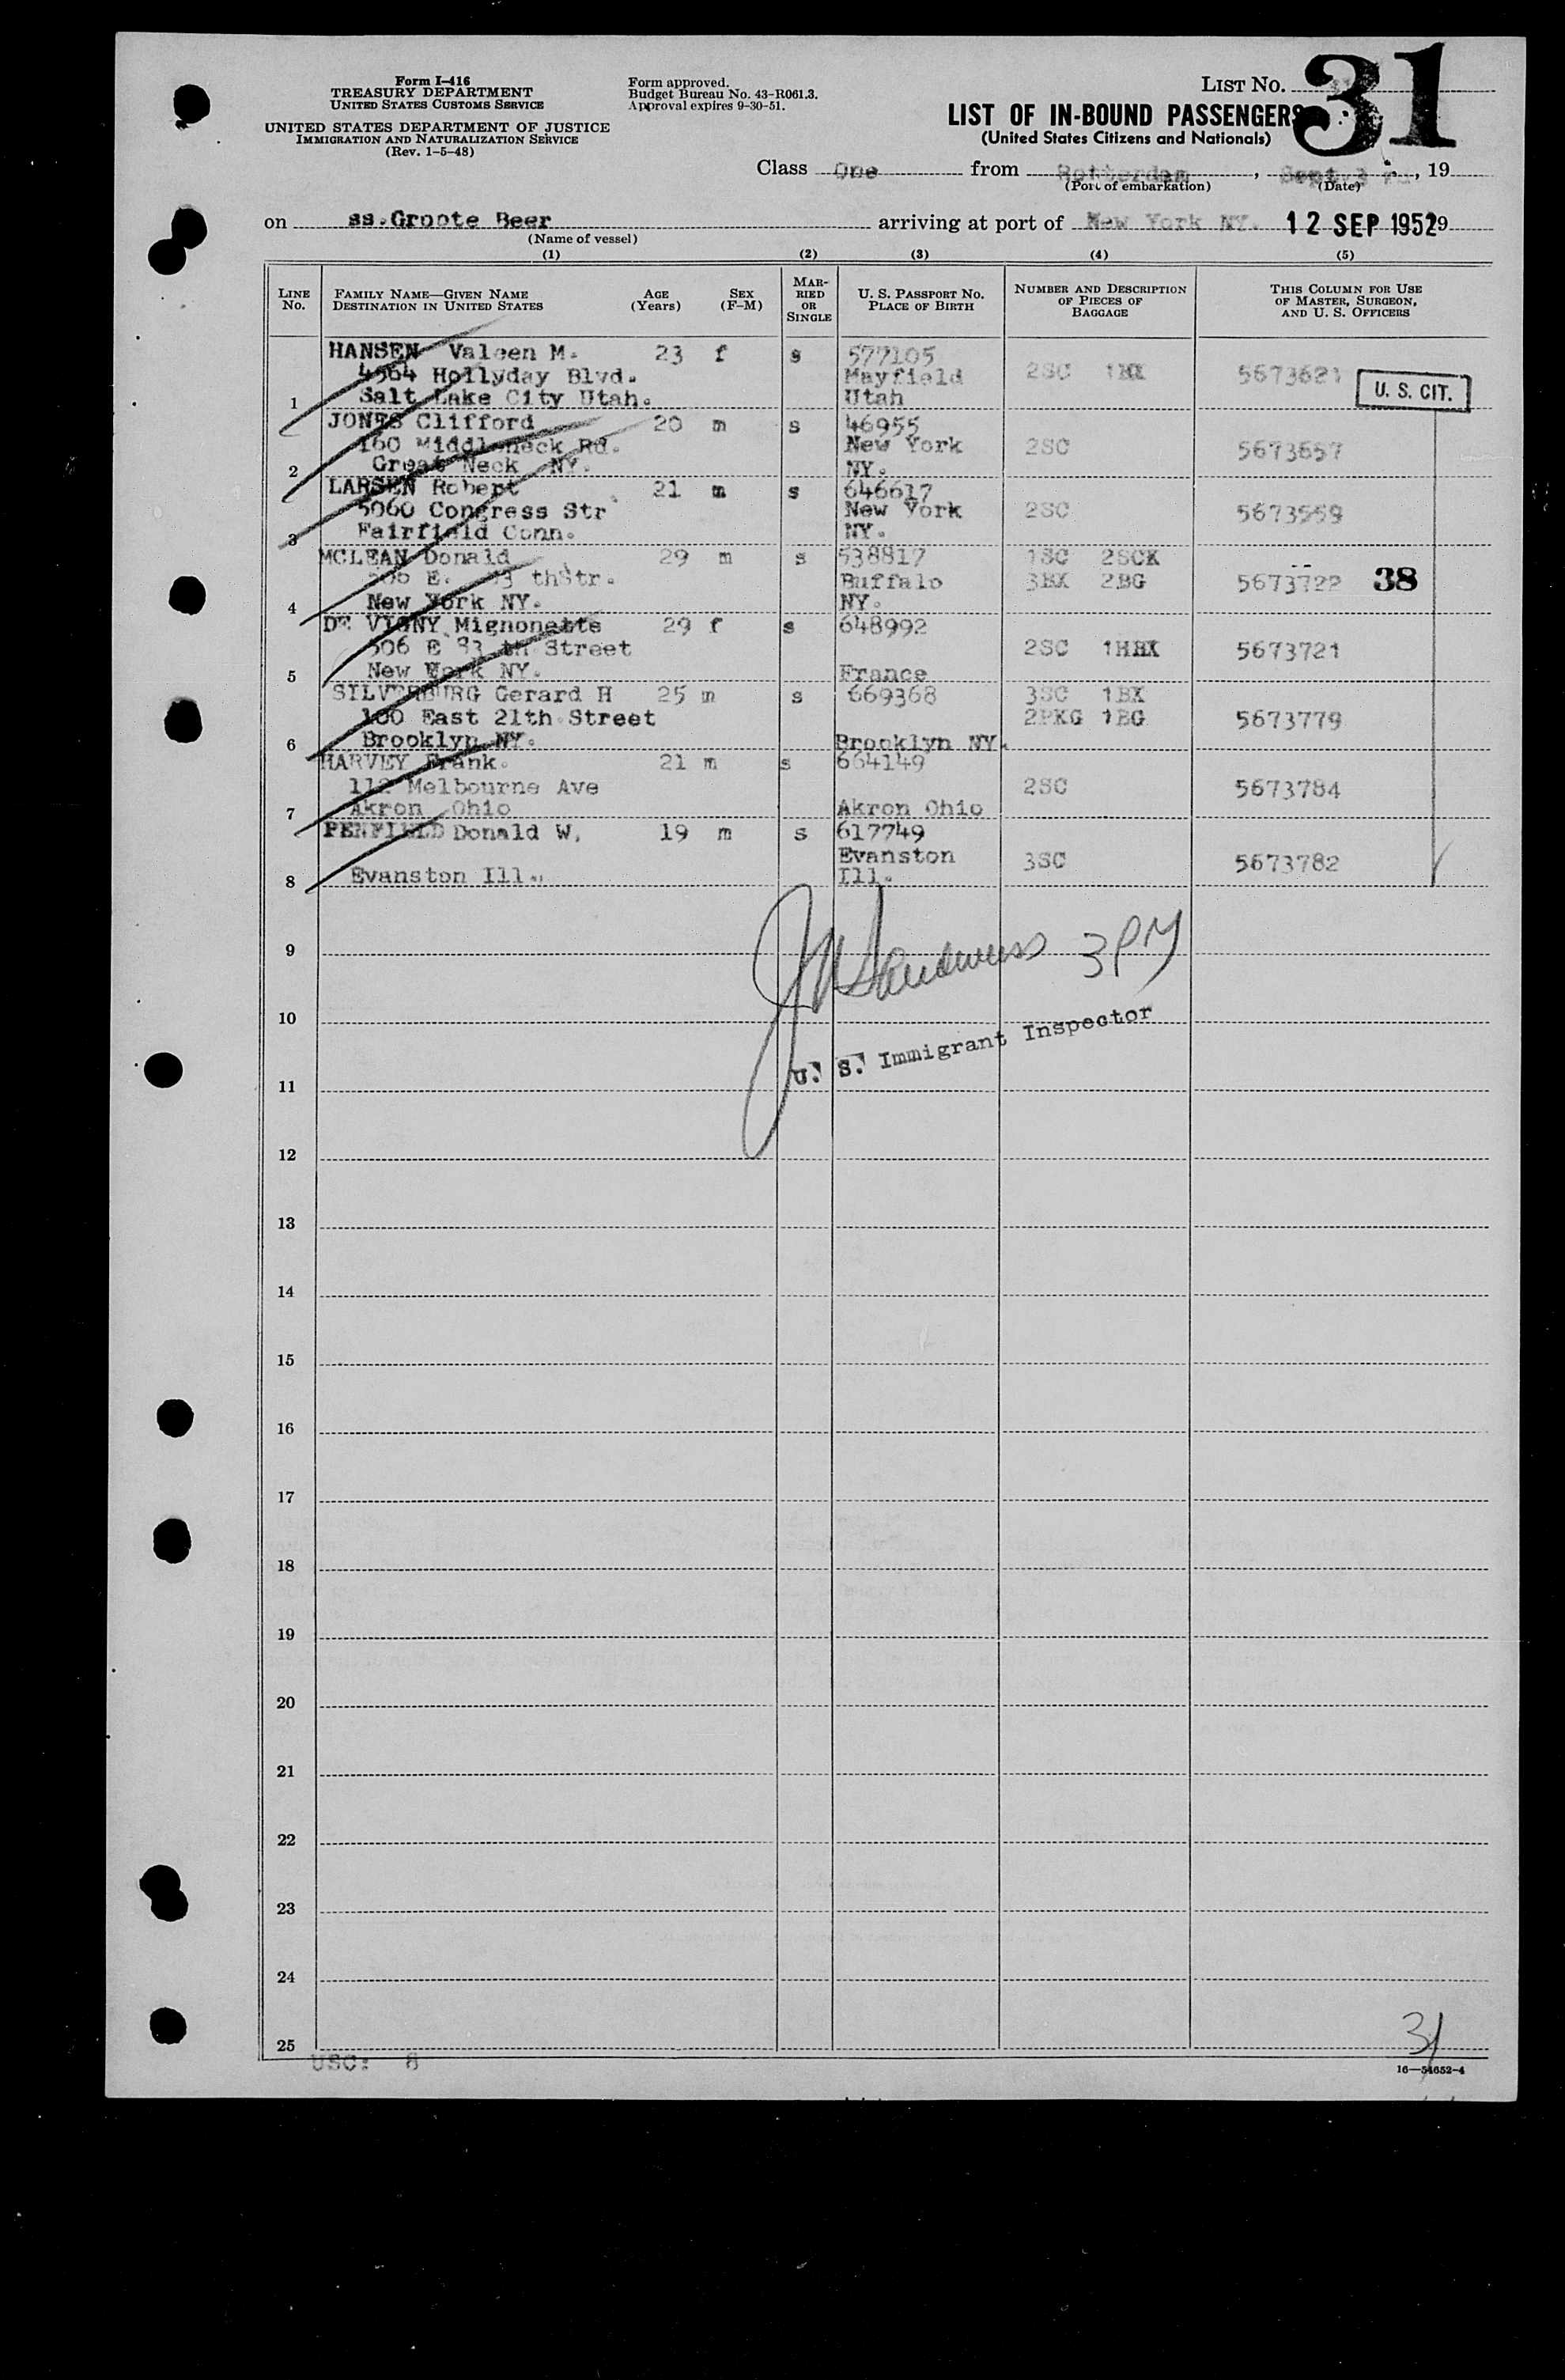 Form I-416
TREASURY DEPARTMENT
UNITED STATES CUSTOMS SERVICE
UNITED STATES DEPARTMENT OF JUSTICE
IMMIGRATION AND NATURALIZATION SERVICE
(Rev. 1-5-48)
Form approved.
Budget Bureau No. 43-R061.3.
Approval expires 9-30-51.
LIST NO. 31
LIST OF IN-BOUND PASSENGERS
(United States Citizens and Nationals)
Class One from Rotterdam, Sept. 3, 19
(Port of embarkation) (Date)
on ss.Groote Beer arriving at port of New York NY. 12 SEP 1952 19
(Name of vessel)
(1) (2) (3) (4) (5)
LINE NO. FAMILY NAME—GIVEN NAME DESTINATION IN UNITED STATES AGE (Years) SEX (F-M) MARRIED OR SINGLE U. S. PASSPORT NO. PLACE OF BIRTH NUMBER AND DESCRIPTION OF PIECES OF BAGGAGE THIS COLUMN FOR USE OF MASTER, SURGEON, AND U. S. OFFICERS
HANSEN Valeen M. 23 f s 577105
4564 Hollyday Blvd. Mayfield 2SC 1BX 5673621 U. S. CIT.
1 Salt Lake City Utah. Utah
JONES Clifford 20 m s 46955
160 Middleneck Rd. New York 2SC 5673657
2 Great Neck NY. NY.
LARSEN Robert 21 m s 646617
5060 Congress Str New York 2SC 5673559
3 Fairfield Conn. NY.
MCLEAN Donald 29 m s 538817 1SC 2SCK
E. thStr. Buffalo 3BX 2BG 5673722 38
4 New York NY. NY.
DE VIGNY Mignonette 29 f s 648992
506 E 83 th Street 2SC 1HBX 5673721
5 New York NY. France
SILVERBURG Gerard H 25 m s 669368 3SC 1BX
100 East 21th Street 2PKG 1BG 5673779
6 Brooklyn NY. Brooklyn NY.
HARVEY Frank. 21 m s 664149
112 Melbourne Ave 2SC 5673784
7 Akron Ohio Akron Ohio
PENFIELD Donald W. 19 m s 617749
Evanston 3SC 5673782
8 Evanston Ill. Ill.
9
3 PM
10
U. S. Immigrant Inspector
11
12
13
14
15
16
17
18
19
20
21
22
23
24
31
25
USC: 8
16—54652-4